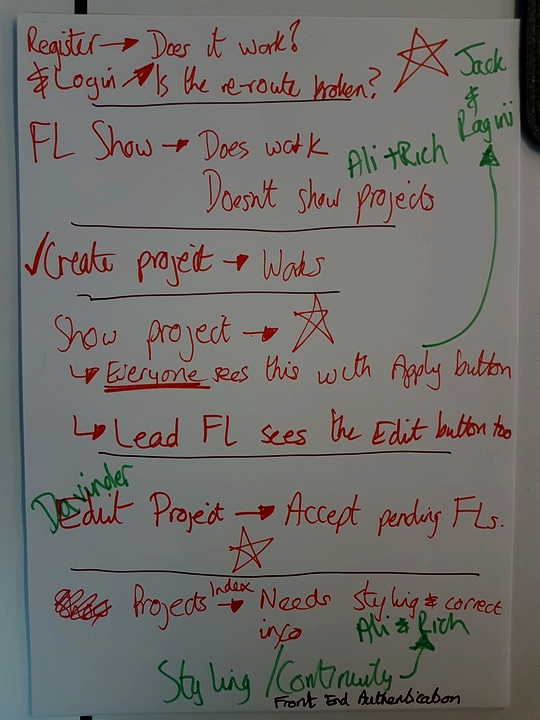 Register → Does it work?
& Login ↗ Is the re-route broken?
Jack
&
Ragini
FL Show → Does work
Ali + Rich
Doesn't show projects
✓Create project → Works
Show project →
↳ Everyone sees this with Apply button
↳ Lead FL sees the Edit button too
Davinder
Edit Project → Accept pending FLs.
Projects Index → Needs styling & correct
info
Ali & Rich
Styling / Continuity
Front End Authentication